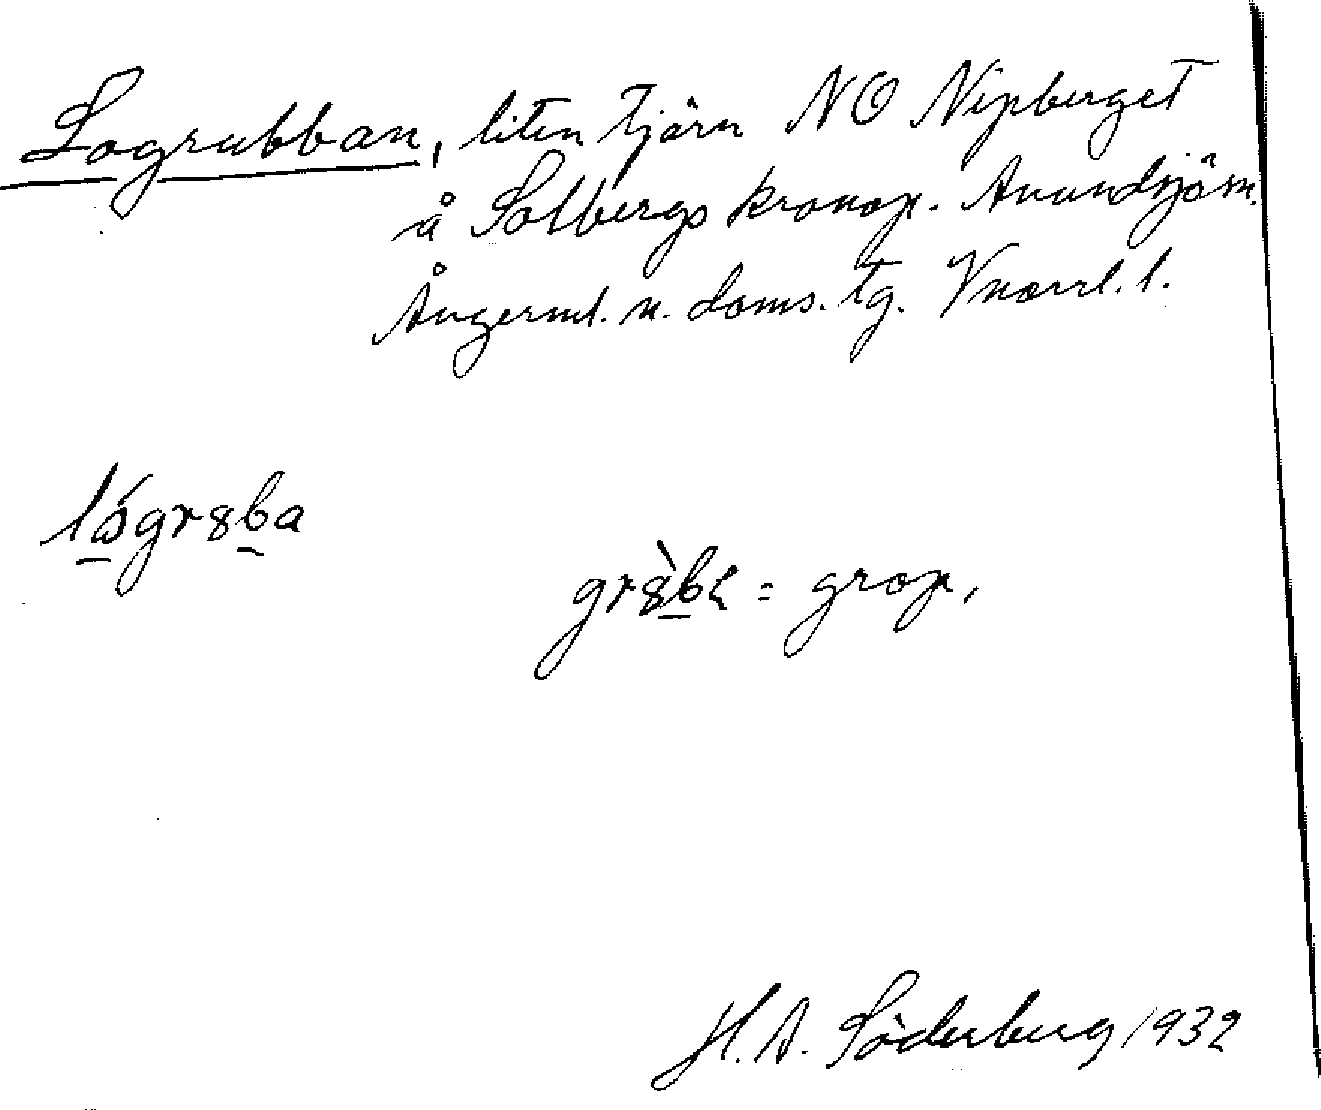 Logrubban, liten tjärn NO Nipberget
å Solbergs kronop. Anundsjö sn.
Ångerml. n. doms. tg. Vnorrl. l.
lågr8ba
gr8̀bɛ = grop,
H. A. Söderberg 1932